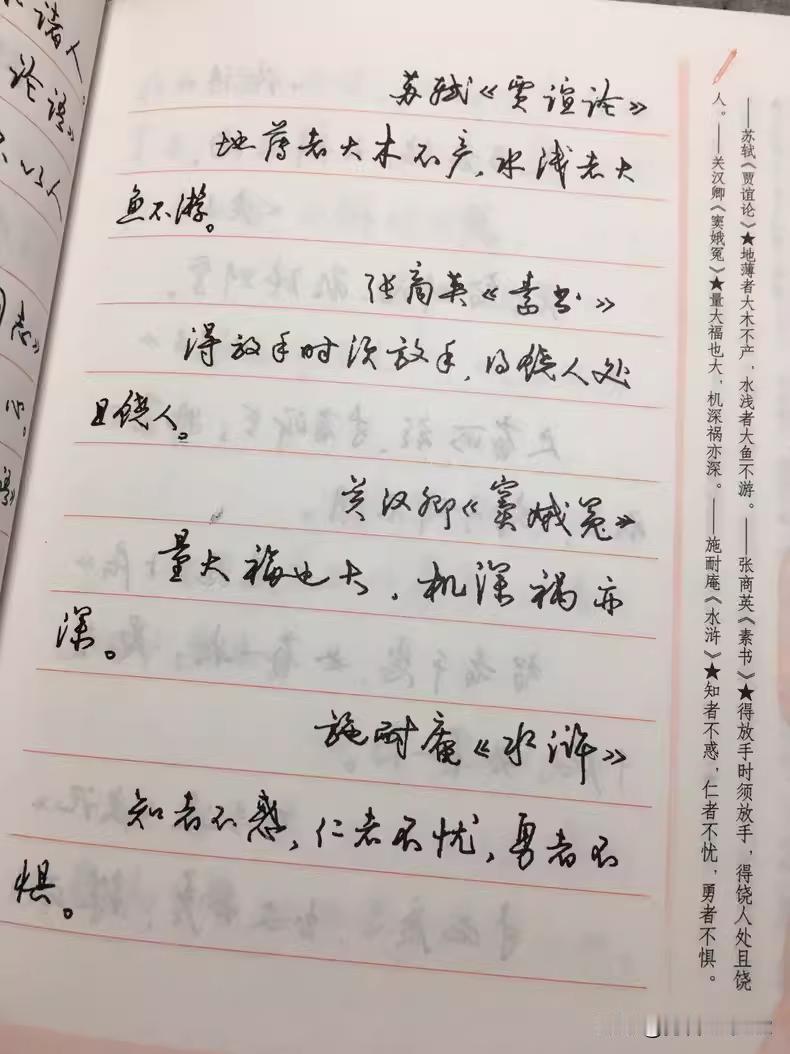 诸人
论语》
人
志》
心
苏轼《贾谊论》
地薄者大木不产,水浅者大
鱼不游。
张商英《素书》
得放手时须放手,得饶人处
且饶人。
关汉卿《窦娥冤》
量大福也大,机深祸亦
深。
施耐庵《水浒》
知者不惑,仁者不忧,勇者不
惧。
——苏轼《贾谊论》★地薄者大木不产,水浅者大鱼不游。——张商英《素书》★得放手时须放手,得饶人处且饶
人。——关汉卿《窦娥冤》★量大福也大,机深祸亦深。——施耐庵《水浒》★知者不惑,仁者不忧,勇者不惧。